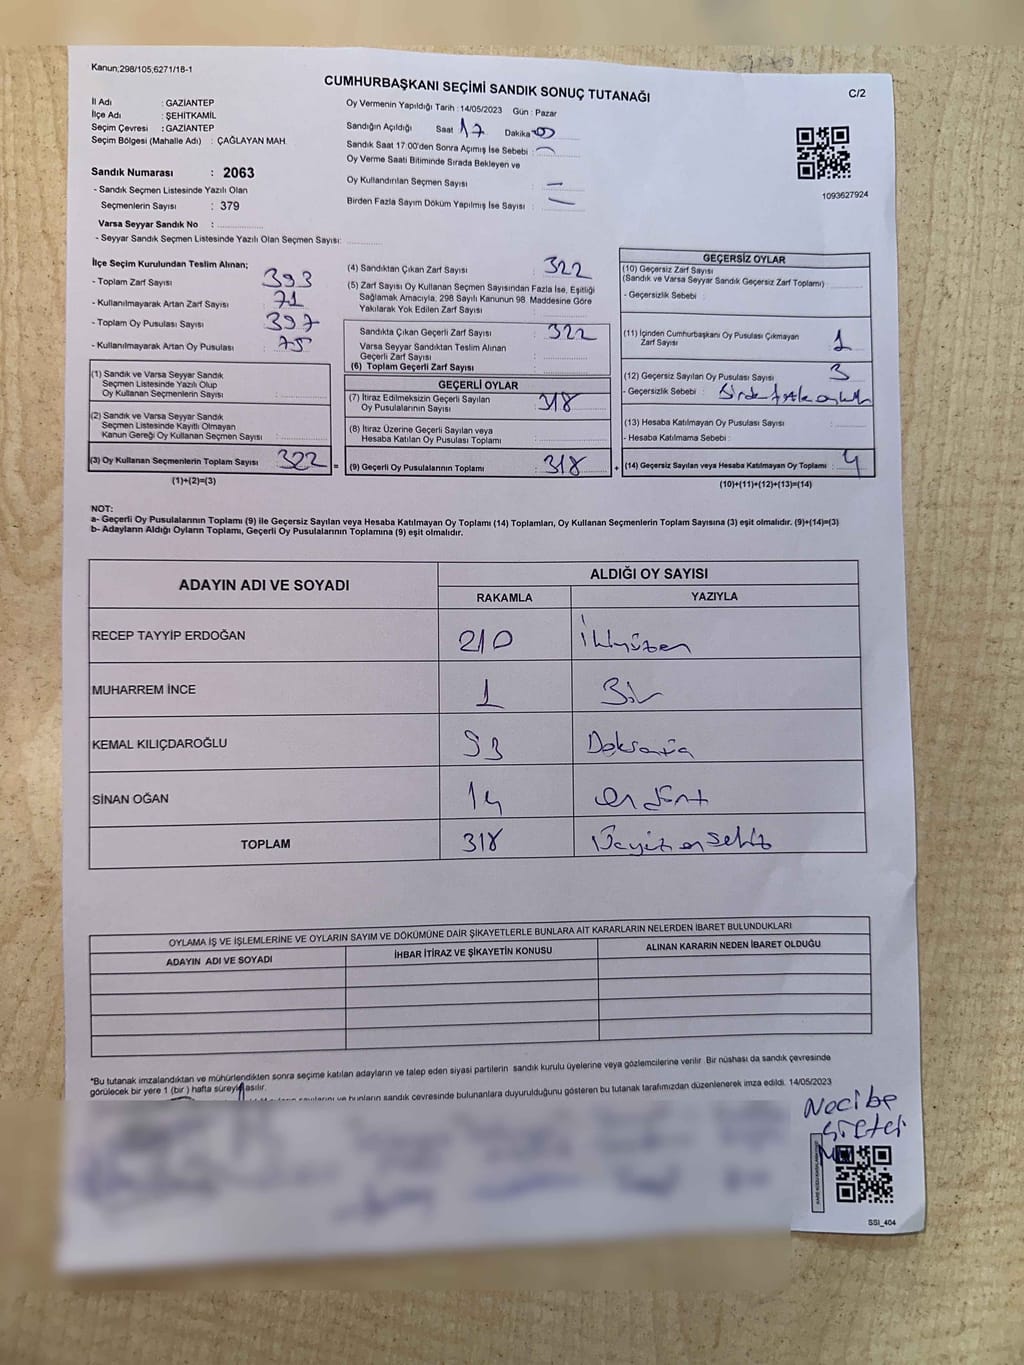 Kanun;298/105;6271/18-1
CUMHURBAŞKANI SEÇİMİ SANDIK SONUÇ TUTANAĞI
C/2
İl Adı : GAZİANTEP
İlçe Adı : ŞEHİTKAMİL
Seçim Çevresi : GAZİANTEP
Seçim Bölgesi (Mahalle Adı) : ÇAĞLAYAN MAH.
Sandık Numarası : 2063
- Sandık Seçmen Listesinde Yazılı Olan
Seçmenlerin Sayısı : 379
Varsa Seyyar Sandık No :
- Seyyar Sandık Seçmen Listesinde Yazılı Olan Seçmen Sayısı:
Oy Vermenin Yapıldığı Tarih : 14/05/2023 Gün : Pazar
Sandığın Açıldığı Saat 17 Dakika 00
Sandık Saat 17:00'den Sonra Açımış İse Sebebi : —
Oy Verme Saati Bitiminde Sırada Bekleyen ve
Oy Kullandırılan Seçmen Sayısı : —
Birden Fazla Sayım Döküm Yapılmış İse Sayısı : —
1093627924
İlçe Seçim Kurulundan Teslim Alınan;
- Toplam Zarf Sayısı : 393
- Kullanılmayarak Artan Zarf Sayısı : 71
- Toplam Oy Pusulası Sayısı : 397
- Kullanılmayarak Artan Oy Pusulası : 75
(1) Sandık ve Varsa Seyyar Sandık
Seçmen Listesinde Yazılı Olup
Oy Kullanan Seçmenlerin Sayısı :
(2) Sandık ve Varsa Seyyar Sandık
Seçmen Listesinde Kayıtlı Olmayan
Kanun Gereği Oy Kullanan Seçmen Sayısı :
(3) Oy Kullanan Seçmenlerin Toplam Sayısı : 322
(1)+(2)=(3)
(4) Sandıktan Çıkan Zarf Sayısı : 322
(5) Zarf Sayısı Oy Kullanan Seçmen Sayısından Fazla İse, Eşitliği
Sağlamak Amacıyla, 298 Sayılı Kanunun 98. Maddesine Göre
Yakılarak Yok Edilen Zarf Sayısı :
Sandıkta Çıkan Geçerli Zarf Sayısı : 322
Varsa Seyyar Sandıktan Teslim Alınan
Geçerli Zarf Sayısı :
(6) Toplam Geçerli Zarf Sayısı :
GEÇERLİ OYLAR
(7) İtiraz Edilmeksizin Geçerli Sayılan
Oy Pusulalarının Sayısı : 318
(8) İtiraz Üzerine Geçerli Sayılan veya
Hesaba Katılan Oy Pusulası Toplamı :
= (9) Geçerli Oy Pusulalarının Toplamı : 318
GEÇERSİZ OYLAR
(10) Geçersiz Zarf Sayısı
(Sandık ve Varsa Seyyar Sandık Geçersiz Zarf Toplamı) :
- Geçersizlik Sebebi :
(11) İçinden Cumhurbaşkanı Oy Pusulası Çıkmayan
Zarf Sayısı : 1
(12) Geçersiz Sayılan Oy Pusulası Sayısı : 3
- Geçersizlik Sebebi : Birden fazla
(13) Hesaba Katılmayan Oy Pusulası Sayısı :
- Hesaba Katılmama Sebebi :
+ (14) Geçersiz Sayılan veya Hesaba Katılmayan Oy Toplamı : 4
(10)+(11)+(12)+(13)=(14)
NOT:
a- Geçerli Oy Pusulalarının Toplamı (9) ile Geçersiz Sayılan veya Hesaba Katılmayan Oy Toplamı (14) Toplamları, Oy Kullanan Seçmenlerin Toplam Sayısına (3) eşit olmalıdır. (9)+(14)=(3)
b- Adayların Aldığı Oyların Toplamı, Geçerli Oy Pusulalarının Toplamına (9) eşit olmalıdır.
ADAYIN ADI VE SOYADI
ALDIĞI OY SAYISI
RAKAMLA YAZIYLA
RECEP TAYYİP ERDOĞAN 210 İkiyüzon
MUHARREM İNCE 1 Bir
KEMAL KILIÇDAROĞLU 93 Doksanüç
SİNAN OĞAN 14 on dört
TOPLAM 318 Üçyüz on sekiz
OYLAMA İŞ VE İŞLEMLERİNE VE OYLARIN SAYIM VE DÖKÜMÜNE DAİR ŞİKAYETLERLE BUNLARA AİT KARARLARIN NELERDEN İBARET BULUNDUKLARI
ADAYIN ADI VE SOYADI İHBAR İTİRAZ VE ŞİKAYETİN KONUSU ALINAN KARARIN NEDEN İBARET OLDUĞU
*Bu tutanak imzalandıktan ve mühürlendikten sonra seçime katılan adayların ve talep eden siyasi partilerin sandık kurulu üyelerine veya gözlemcilerine verilir. Bir nüshası da sandık çevresinde
görülecek bir yere 1 (bir ) hafta süreyle asılır.
sayılarını ve bunların sandık çevresinde bulunanlara duyurulduğunu gösteren bu tutanak tarafımızdan düzenlenerek imza edildi. 14/05/2023
Necibe
SSI_404